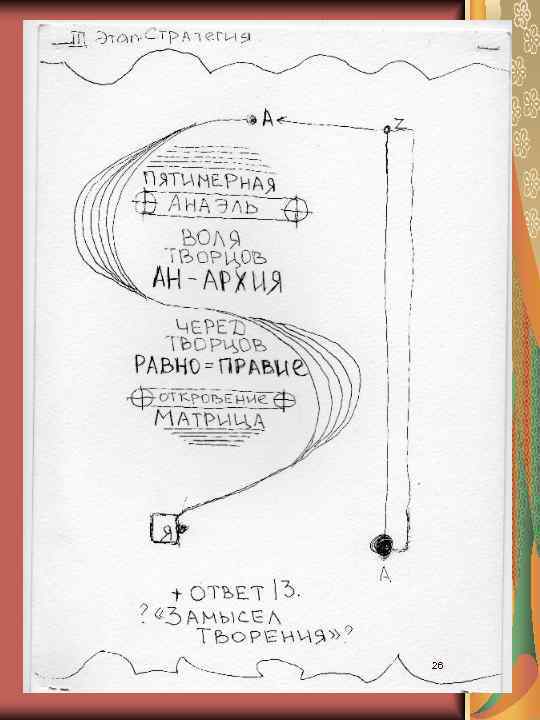 III Этап-Стратегия
А
Z
ПЯТИМЕРНАЯ
АНАЭЛЬ
ВОЛЯ
ТВОРЦОВ
АН-АРХИЯ
ЧЕРЕД
ТВОРЦОВ
РАВНО=ПРАВИЕ
ОТКРОВЕНИЕ
МАТРИЦА
Я
А
+ ОТВЕТ 13.
? «ЗАМЫСЕЛ
ТВОРЕНИЯ»?
26